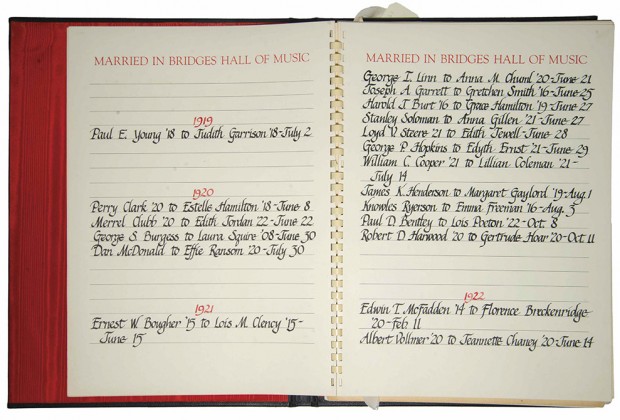 MARRIED IN BRIDGES HALL OF MUSIC
1919
Paul E. Young '18 to Judith Garrison '18-July 2
1920
Perry Clark '20 to Estelle Hamilton '18-June 8
Merrel Clubb '20 to Edith Jordan '22-June 22
George S. Burgess to Laura Squire '08-June 30
Dan McDonald to Effie Ransom '20-July 30
1921
Ernest W. Bougher '15 to Lois M. Clency '15-
June 15
MARRIED IN BRIDGES HALL OF MUSIC
George I. Linn to Anna M. Chuml '20-June 21
Joseph A. Garrett to Gretchen Smith '16-June 25
Harold J. Burt '16 to Grace Hamilton '19-June 27
Stanley Soloman to Anna Gillen '21-June 27
Loyd V. Steere '21 to Edith Jewell-June 28
George P. Hopkins to Edyth Ernst '21-June 29
William C. Cooper '21 to Lillian Coleman '21-
July 14
James K. Henderson to Margaret Gaylord '19-Aug. 1
Knowles Ryerson to Emma Freeman '16-Aug. 3
Paul D. Bentley to Lois Poeton '22-Oct. 8
Robert D. Harwood '20 to Gertrude Hoar '20-Oct. 11
1922
Edwin T. McFadden '14 to Florence Breckenridge
'20-Feb. 11
Albert Vollmer '20 to Jeannette Chaney '20-June 14